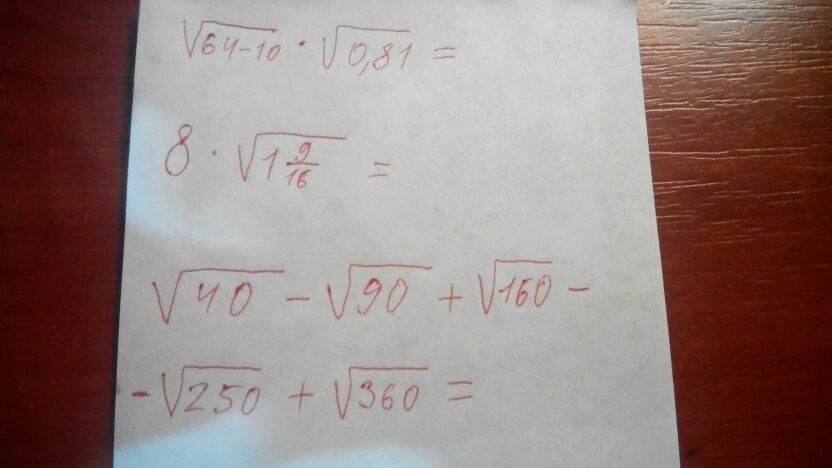 √64-10 · √0,81 =
8 · √1 9/16 =
√40 - √90 + √160 -
- √250 + √360 =